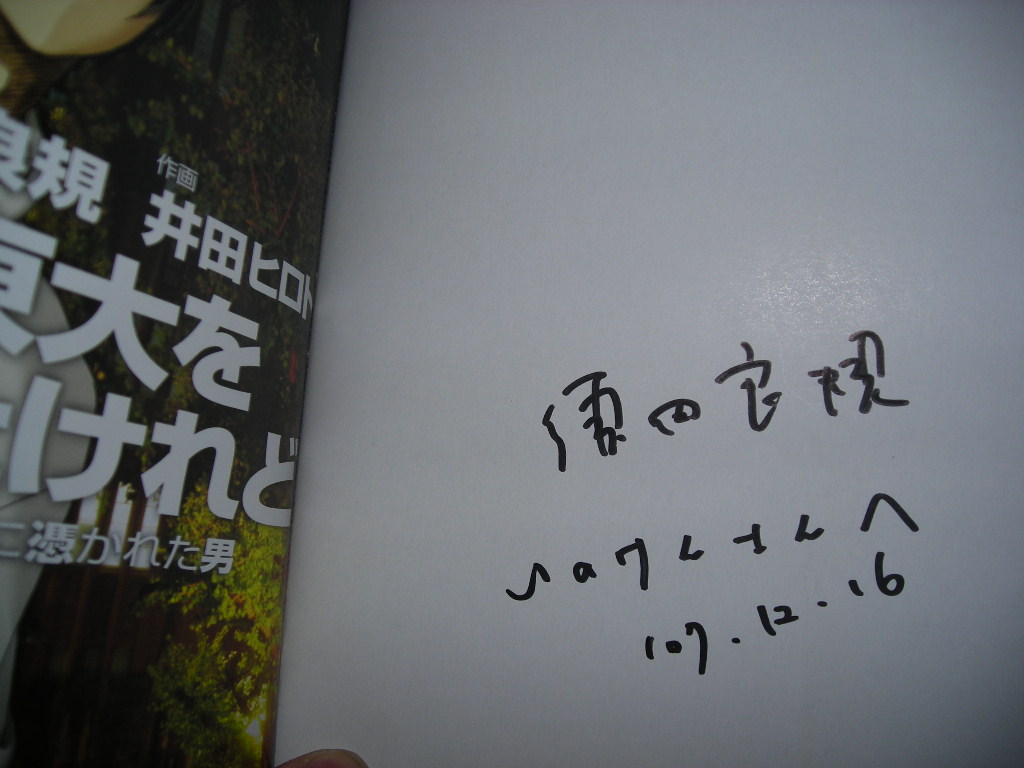 良規
作画
井田ヒロト
東大を
けれど
に憑かれた男
須田良規
さんへ
'07.12.16